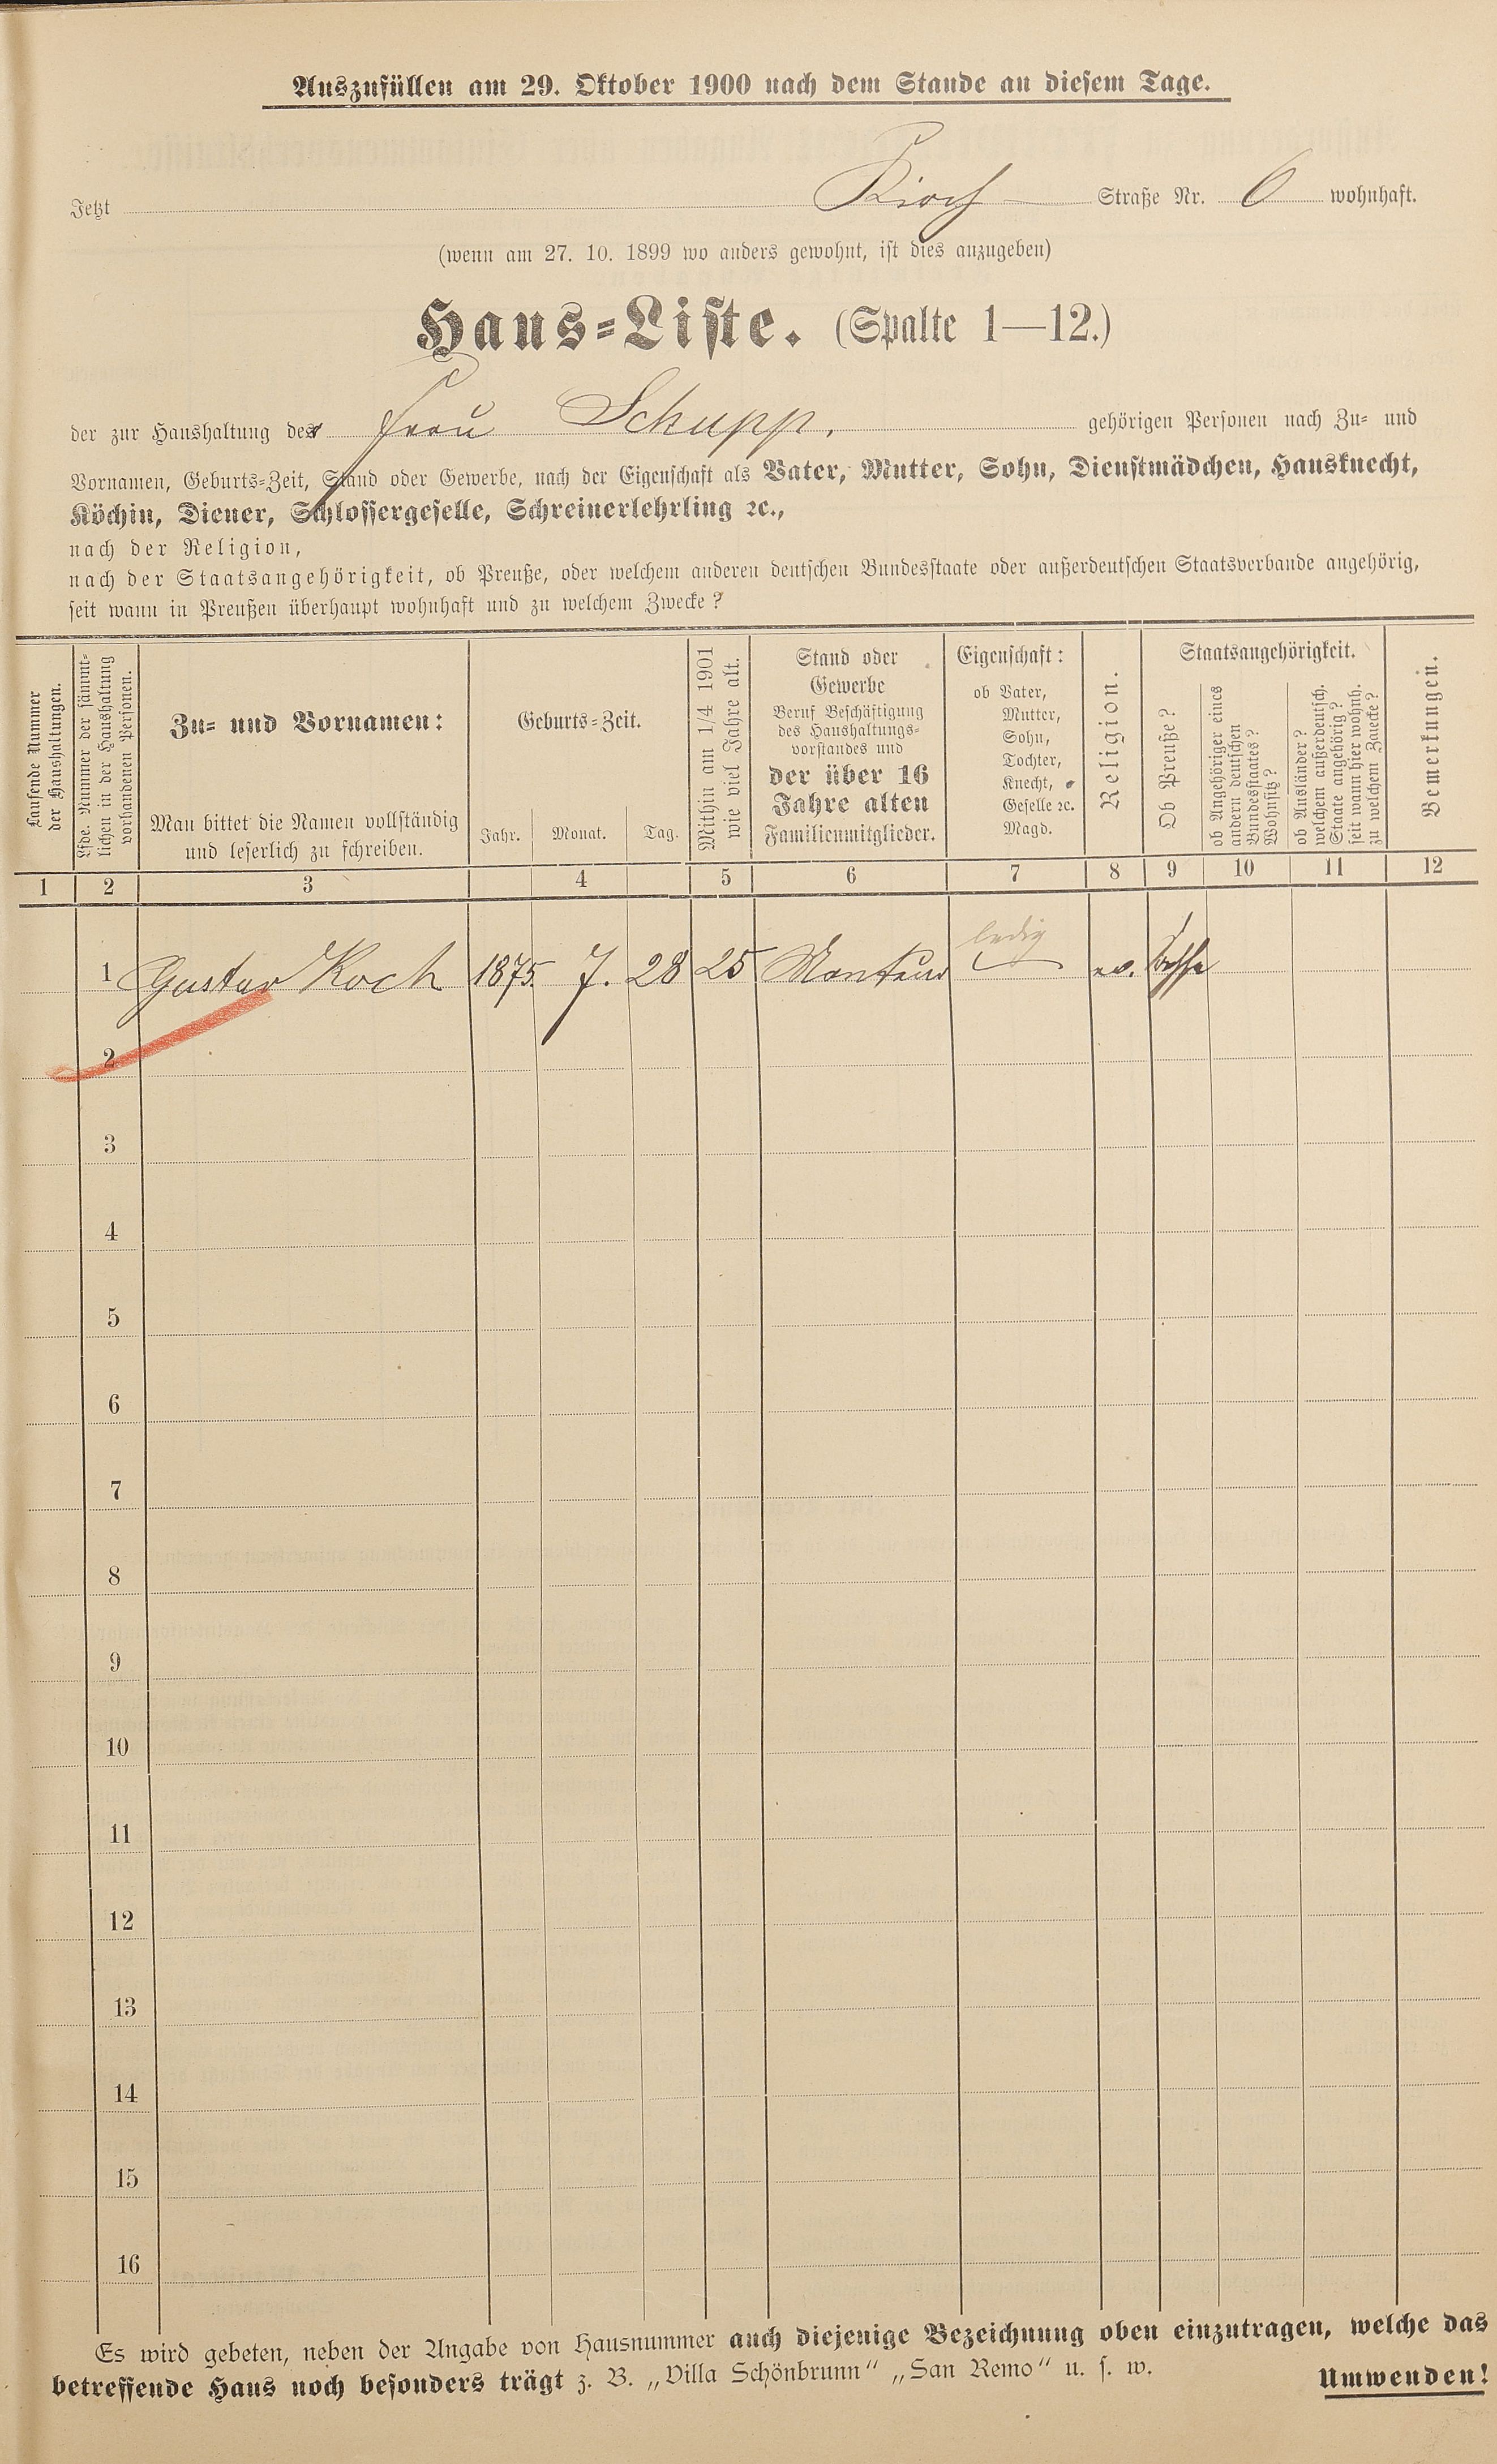 Auszufüllen am 29. Oktober 1900 nach dem Stande an diesem Tage.
Jetzt Kirch Straße Nr. 6 wohnhaft.
(wenn am 27. 10. 1899 wo anders gewohnt, ist dies anzugeben)
Haus-Liste. (Spalte 1—12.)
der zur Haushaltung der Frau Schupp. gehörigen Personen nach Zu- und
Vornamen, Geburts-Zeit, Stand oder Gewerbe, nach der Eigenschaft als Vater, Mutter, Sohn, Dienstmädchen, Hausknecht,
Köchin, Diener, Schlossergeselle, Schreinerlehrling ꝛc.,
nach der Religion,
nach der Staatsangehörigkeit, ob Preuße, oder welchem anderen deutschen Bundesstaate oder außerdeutschen Staatsverbande angehörig,
seit wann in Preußen überhaupt wohnhaft und zu welchem Zwecke?
Laufende Nummer
der Haushaltungen.
Lfde. Nummer der sämmt-
lichen in der Haushaltung
vorhandenen Personen.
Zu- und Vornamen:
Man bittet die Namen vollständig
und leserlich zu schreiben.
Geburts-Zeit.
Jahr. Monat. Tag.
Mithin am 1/4 1901
wie viel Jahre alt.
Stand oder
Gewerbe
Beruf Beschäftigung
des Haushaltungs-
vorstandes und
der über 16
Jahre alten
Familienmitglieder.
Eigenschaft:
ob Vater,
Mutter,
Sohn,
Tochter,
Knecht,
Geselle ꝛc.
Magd.
Religion.
Staatsangehörigkeit.
Ob Preuße?
ob Angehöriger eines
andern deutschen
Bundesstaates?
Wohnsitz?
ob Ausländer?
welchem außerdeutsch.
Staate angehörig?
seit wann hier wohnh.
zu welchem Zwecke?
Bemerkungen.
1 2 3 4 5 6 7 8 9 10 11 12
1 Gustav Koch 1875 7. 28 25 Monteur ledig ev.
2
3
4
5
6
7
8
9
10
11
12
13
14
15
16
Es wird gebeten, neben der Angabe von Hausnummer auch diejenige Bezeichnung oben einzutragen, welche das
betreffende Haus noch besonders trägt z. B. „Villa Schönbrunn“ „San Remo“ u. s. w.
Umwenden!